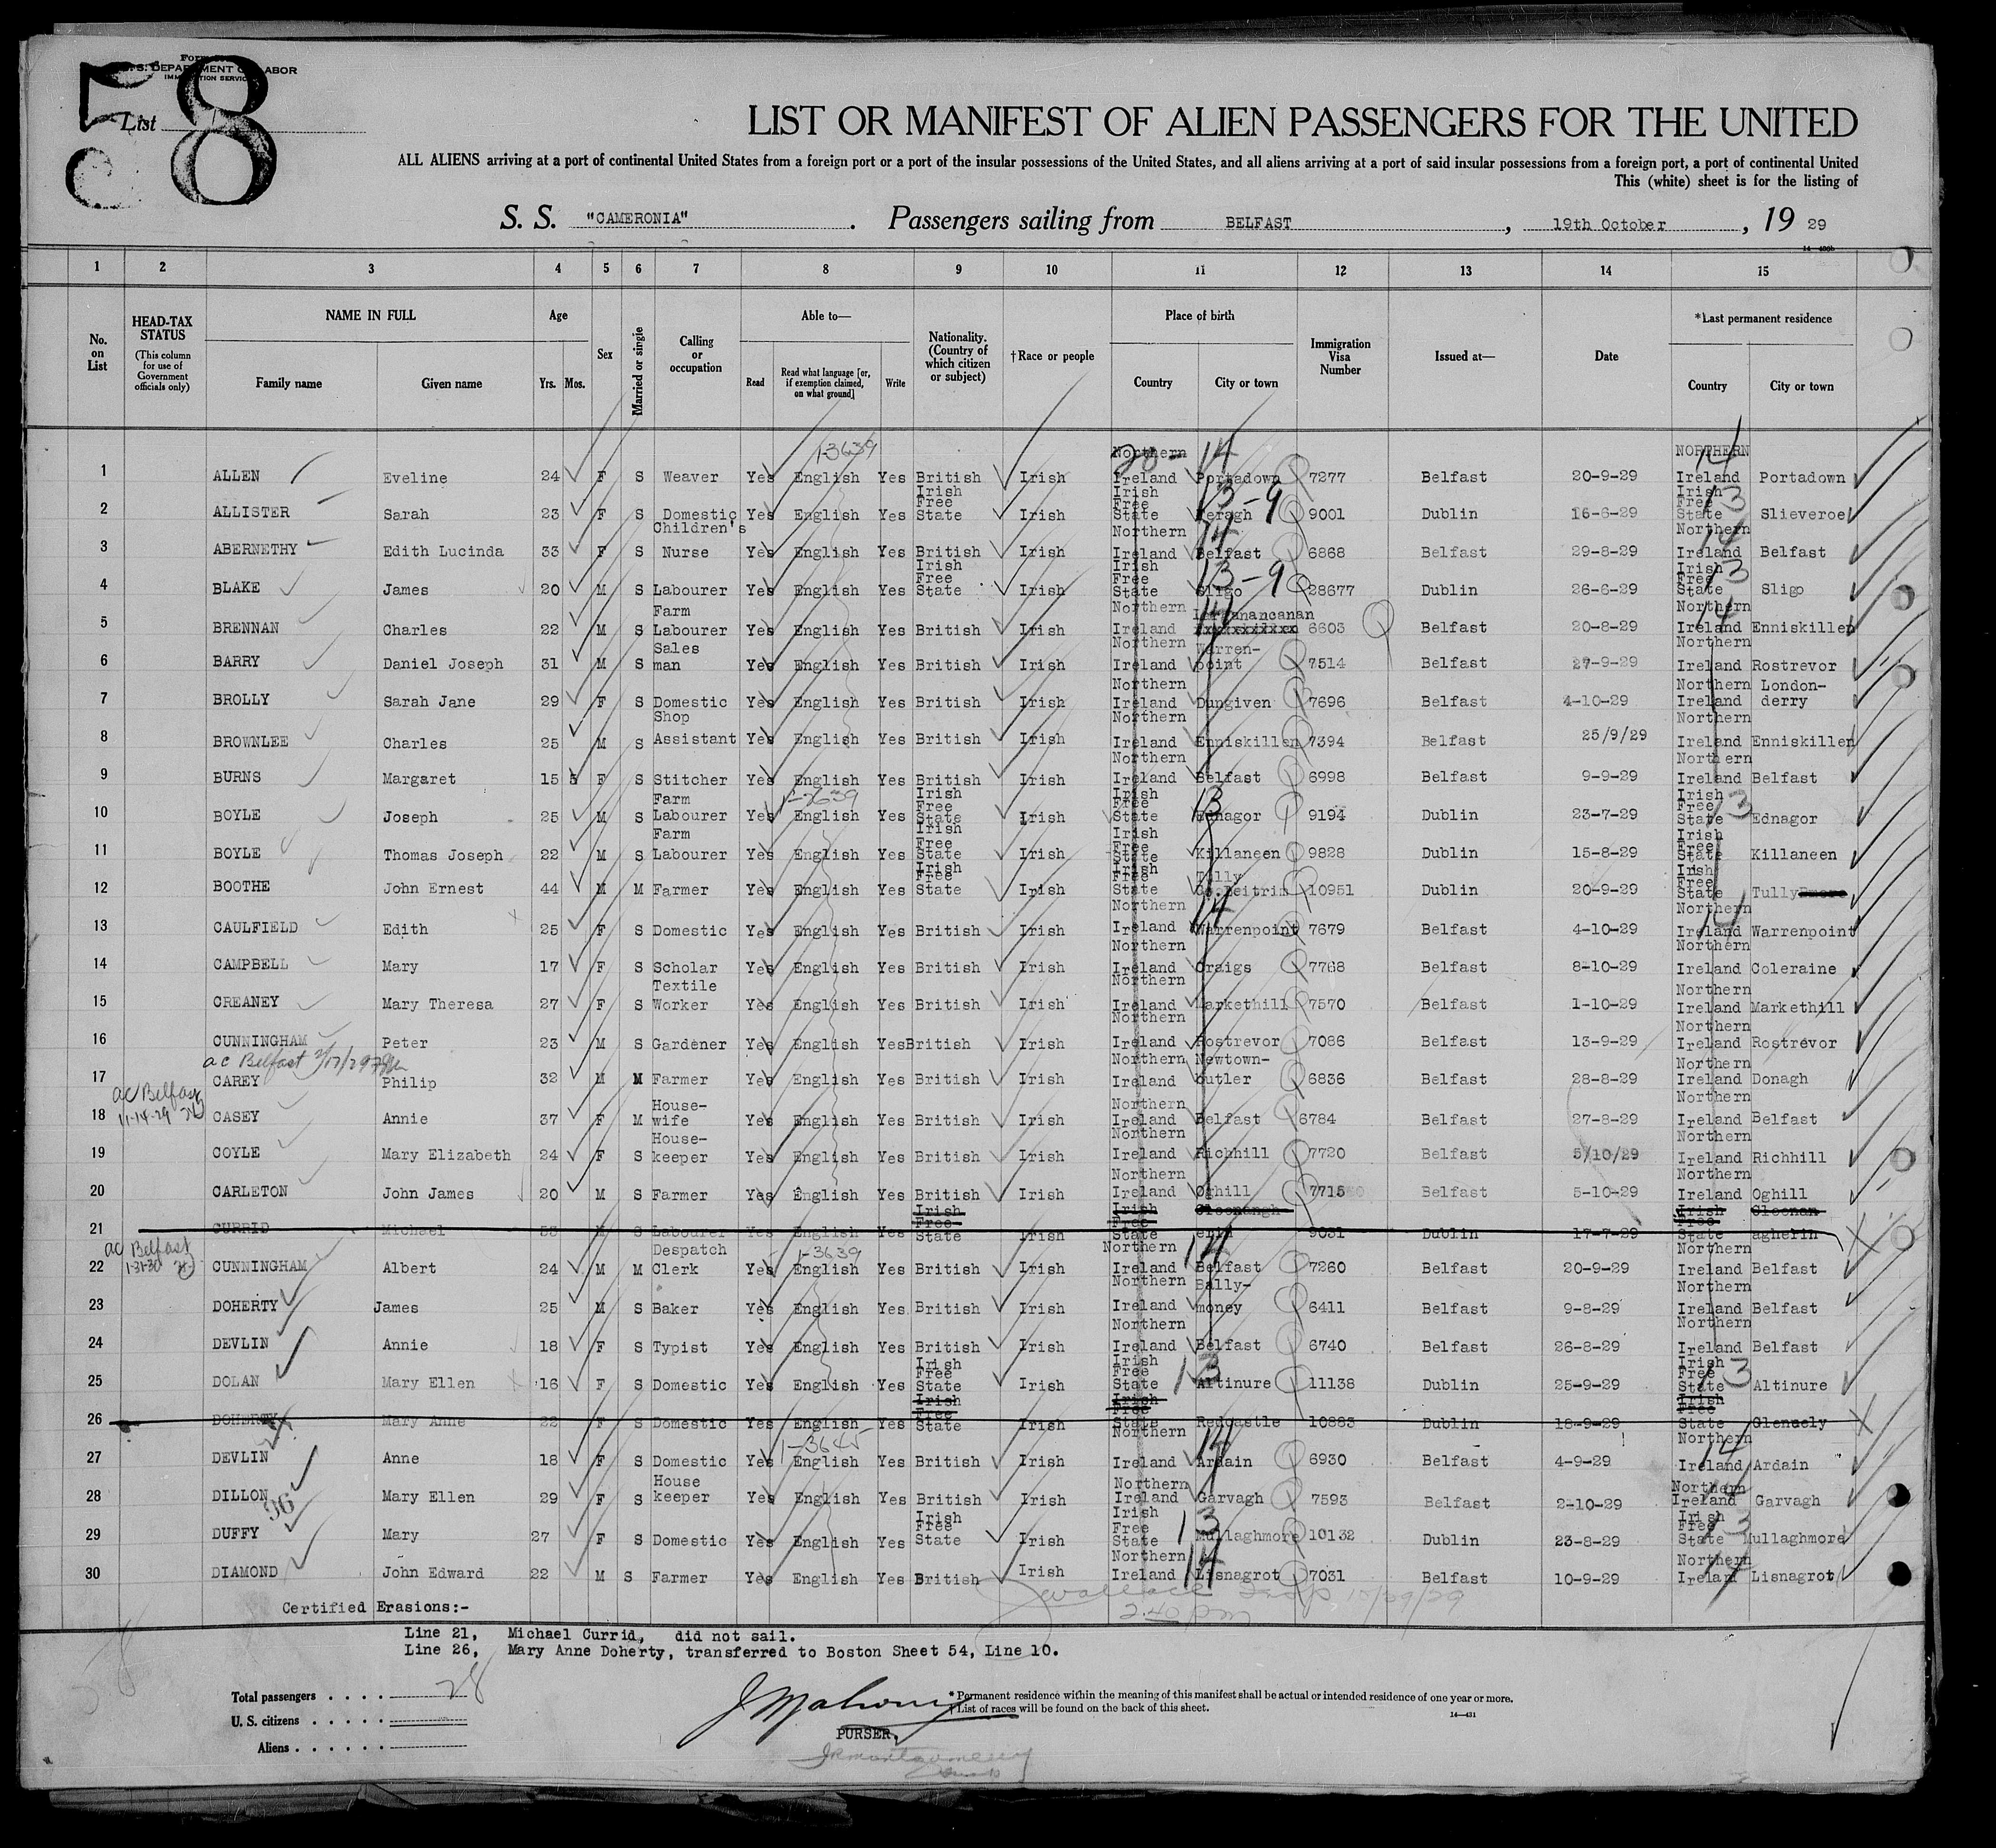 58
Form
U. S. DEPARTMENT OF LABOR
IMMIGRATION SERVICE
List
LIST OR MANIFEST OF ALIEN PASSENGERS FOR THE UNITED
ALL ALIENS arriving at a port of continental United States from a foreign port or a port of the insular possessions of the United States, and all aliens arriving at a port of said insular possessions from a foreign port, a port of continental United
This (white) sheet is for the listing of
S. S. "CAMERONIA". Passengers sailing from BELFAST, 19th October, 19 29
1 2 3 4 5 6 7 8 9 10 11 12 13 14 15
No. on List
HEAD-TAX STATUS (This column for use of Government officials only)
NAME IN FULL
Family name Given name
Age
Yrs. Mos.
Sex
Married or single
Calling or occupation
Able to—
Read Read what language [or, if exemption claimed, on what ground] Write
Nationality. (Country of which citizen or subject)
†Race or people
Place of birth
Country City or town
Immigration Visa Number
Issued at—
Date
*Last permanent residence
Country City or town
1-3639 20- 14 14
1 ALLEN Eveline 24 F S Weaver Yes English Yes British Irish Northern Ireland Portadown 7277 Belfast 20-9-29 NORTHERN Ireland Portadown
13-9 13
2 ALLISTER Sarah 23 F S Domestic Yes English Yes Irish Free State Irish Irish Free State 9001 Dublin 16-6-29 Irish Free State Slieveroe
14 14
3 ABERNETHY Edith Lucinda 33 F S Children's Nurse Yes English Yes British Irish Northern Ireland Belfast 6868 Belfast 29-8-29 Northern Ireland Belfast
13-9 13
4 BLAKE James 20 M S Labourer Yes English Yes Irish Free State Irish Irish Free State Sligo 28677 Dublin 26-6-29 Irish Free State Sligo
14 14
5 BRENNAN Charles 22 M S Farm Labourer Yes English Yes British Irish Northern Ireland 6603 Belfast 20-8-29 Northern Ireland Enniskillen
6 BARRY Daniel Joseph 31 M S Sales man Yes English Yes British Irish Northern Ireland Warren-point 7514 Belfast 27-9-29 Northern Ireland Rostrevor
7 BROLLY Sarah Jane 29 F S Domestic Yes English Yes British Irish Northern Ireland Dungiven 7696 Belfast 4-10-29 Northern Ireland London-derry
8 BROWNLEE Charles 25 M S Shop Assistant Yes English Yes British Irish Northern Ireland Enniskillen 7394 Belfast 25/9/29 Northern Ireland Enniskillen
9 BURNS Margaret 15 5 F S Stitcher Yes English Yes British Irish Northern Ireland Belfast 6998 Belfast 9-9-29 Northern Ireland Belfast
1-3639 13 13
10 BOYLE Joseph 25 M S Farm Labourer Yes English Yes Irish Free State Irish Irish Free State Ednagor 9194 Dublin 23-7-29 Irish Free State Ednagor
11 BOYLE Thomas Joseph 22 M S Farm Labourer Yes English Yes Irish Free State Irish Irish Free State Killaneen 9828 Dublin 15-8-29 Irish Free State Killaneen
12 BOOTHE John Ernest 44 M M Farmer Yes English Yes Irish Free State Irish Irish Free State Tully Co.Leitrim 10951 Dublin 20-9-29 Irish Free State Tully
14 14
13 CAULFIELD Edith 25 F S Domestic Yes English Yes British Irish Northern Ireland Warrenpoint 7679 Belfast 4-10-29 Northern Ireland Warrenpoint
14 CAMPBELL Mary 17 F S Scholar Yes English Yes British Irish Northern Ireland Craigs 7768 Belfast 8-10-29 Northern Ireland Coleraine
15 CREANEY Mary Theresa 27 F S Textile Worker Yes English Yes British Irish Northern Ireland Markethill 7570 Belfast 1-10-29 Northern Ireland Markethill
16 CUNNINGHAM Peter 23 M S Gardener Yes English Yes British Irish Northern Ireland Rostrevor 7086 Belfast 13-9-29 Northern Ireland Rostrevor
ac Belfast
17 CAREY Philip 32 M M Farmer Yes English Yes British Irish Northern Ireland Newtown-butler 6836 Belfast 28-8-29 Northern Ireland Donagh
ac Belfast 11-14-29
18 CASEY Annie 37 F M House-wife Yes English Yes British Irish Northern Ireland Belfast 6784 Belfast 27-8-29 Northern Ireland Belfast
19 COYLE Mary Elizabeth 24 F S House-keeper Yes English Yes British Irish Northern Ireland Richhill 7720 Belfast 5/10/29 Northern Ireland Richhill
20 CARLETON John James 20 M S Farmer Yes English Yes British Irish Northern Ireland Oghill 7715 Belfast 5-10-29 Northern Ireland Oghill
21 CURRID Michael M S Labourer Yes English Yes Irish Free State Irish Irish Free State 9031 Dublin 17-7-29 Irish Free State Cloonan-agherin
ac Belfast 1-31-30 1-3639 14
22 CUNNINGHAM Albert 24 M M Despatch Clerk Yes English Yes British Irish Northern Ireland Belfast 7260 Belfast 20-9-29 Northern Ireland Belfast
23 DOHERTY James 25 M S Baker Yes English Yes British Irish Northern Ireland Bally-money 6411 Belfast 9-8-29 Northern Ireland Belfast
24 DEVLIN Annie 18 F S Typist Yes English Yes British Irish Northern Ireland Belfast 6740 Belfast 26-8-29 Northern Ireland Belfast
13 13
25 DOLAN Mary Ellen 16 F S Domestic Yes English Yes Irish Free State Irish Irish Free State Altinure 11138 Dublin 25-9-29 Irish Free State Altinure
26 DOHERTY Mary Anne 22 F S Domestic Yes English Yes Irish Free State Irish Irish Free State Redcastle 10883 Dublin 18-9-29 Irish Free State Glenuely
1-3645 14 14
27 DEVLIN Anne 18 F S Domestic Yes English Yes British Irish Northern Ireland Ardain 6930 Belfast 4-9-29 Northern Ireland Ardain
28 DILLON Mary Ellen 29 F S House keeper Yes English Yes British Irish Northern Ireland Garvagh 7593 Belfast 2-10-29 Northern Ireland Garvagh
36 13 13
29 DUFFY Mary 27 F S Domestic Yes English Yes Irish Free State Irish Irish Free State Mullaghmore 10132 Dublin 23-8-29 Irish Free State Mullaghmore
14 14
30 DIAMOND John Edward 22 M S Farmer Yes English Yes British Irish Northern Ireland Lisnagrot 7031 Belfast 10-9-29 Northern Irelan Lisnagrot
JWallace Insp 10/29/29
2.40 pm
Certified Erasions:-
Line 21, Michael Currid, did not sail.
Line 26, Mary Anne Doherty, transferred to Boston Sheet 54, Line 10.
Total passengers . . . . 28
U. S. citizens . . . . .
Aliens . . . . . .
J Mahony
PURSER,
* Permanent residence within the meaning of this manifest shall be actual or intended residence of one year or more.
† List of races will be found on the back of this sheet.
14—431